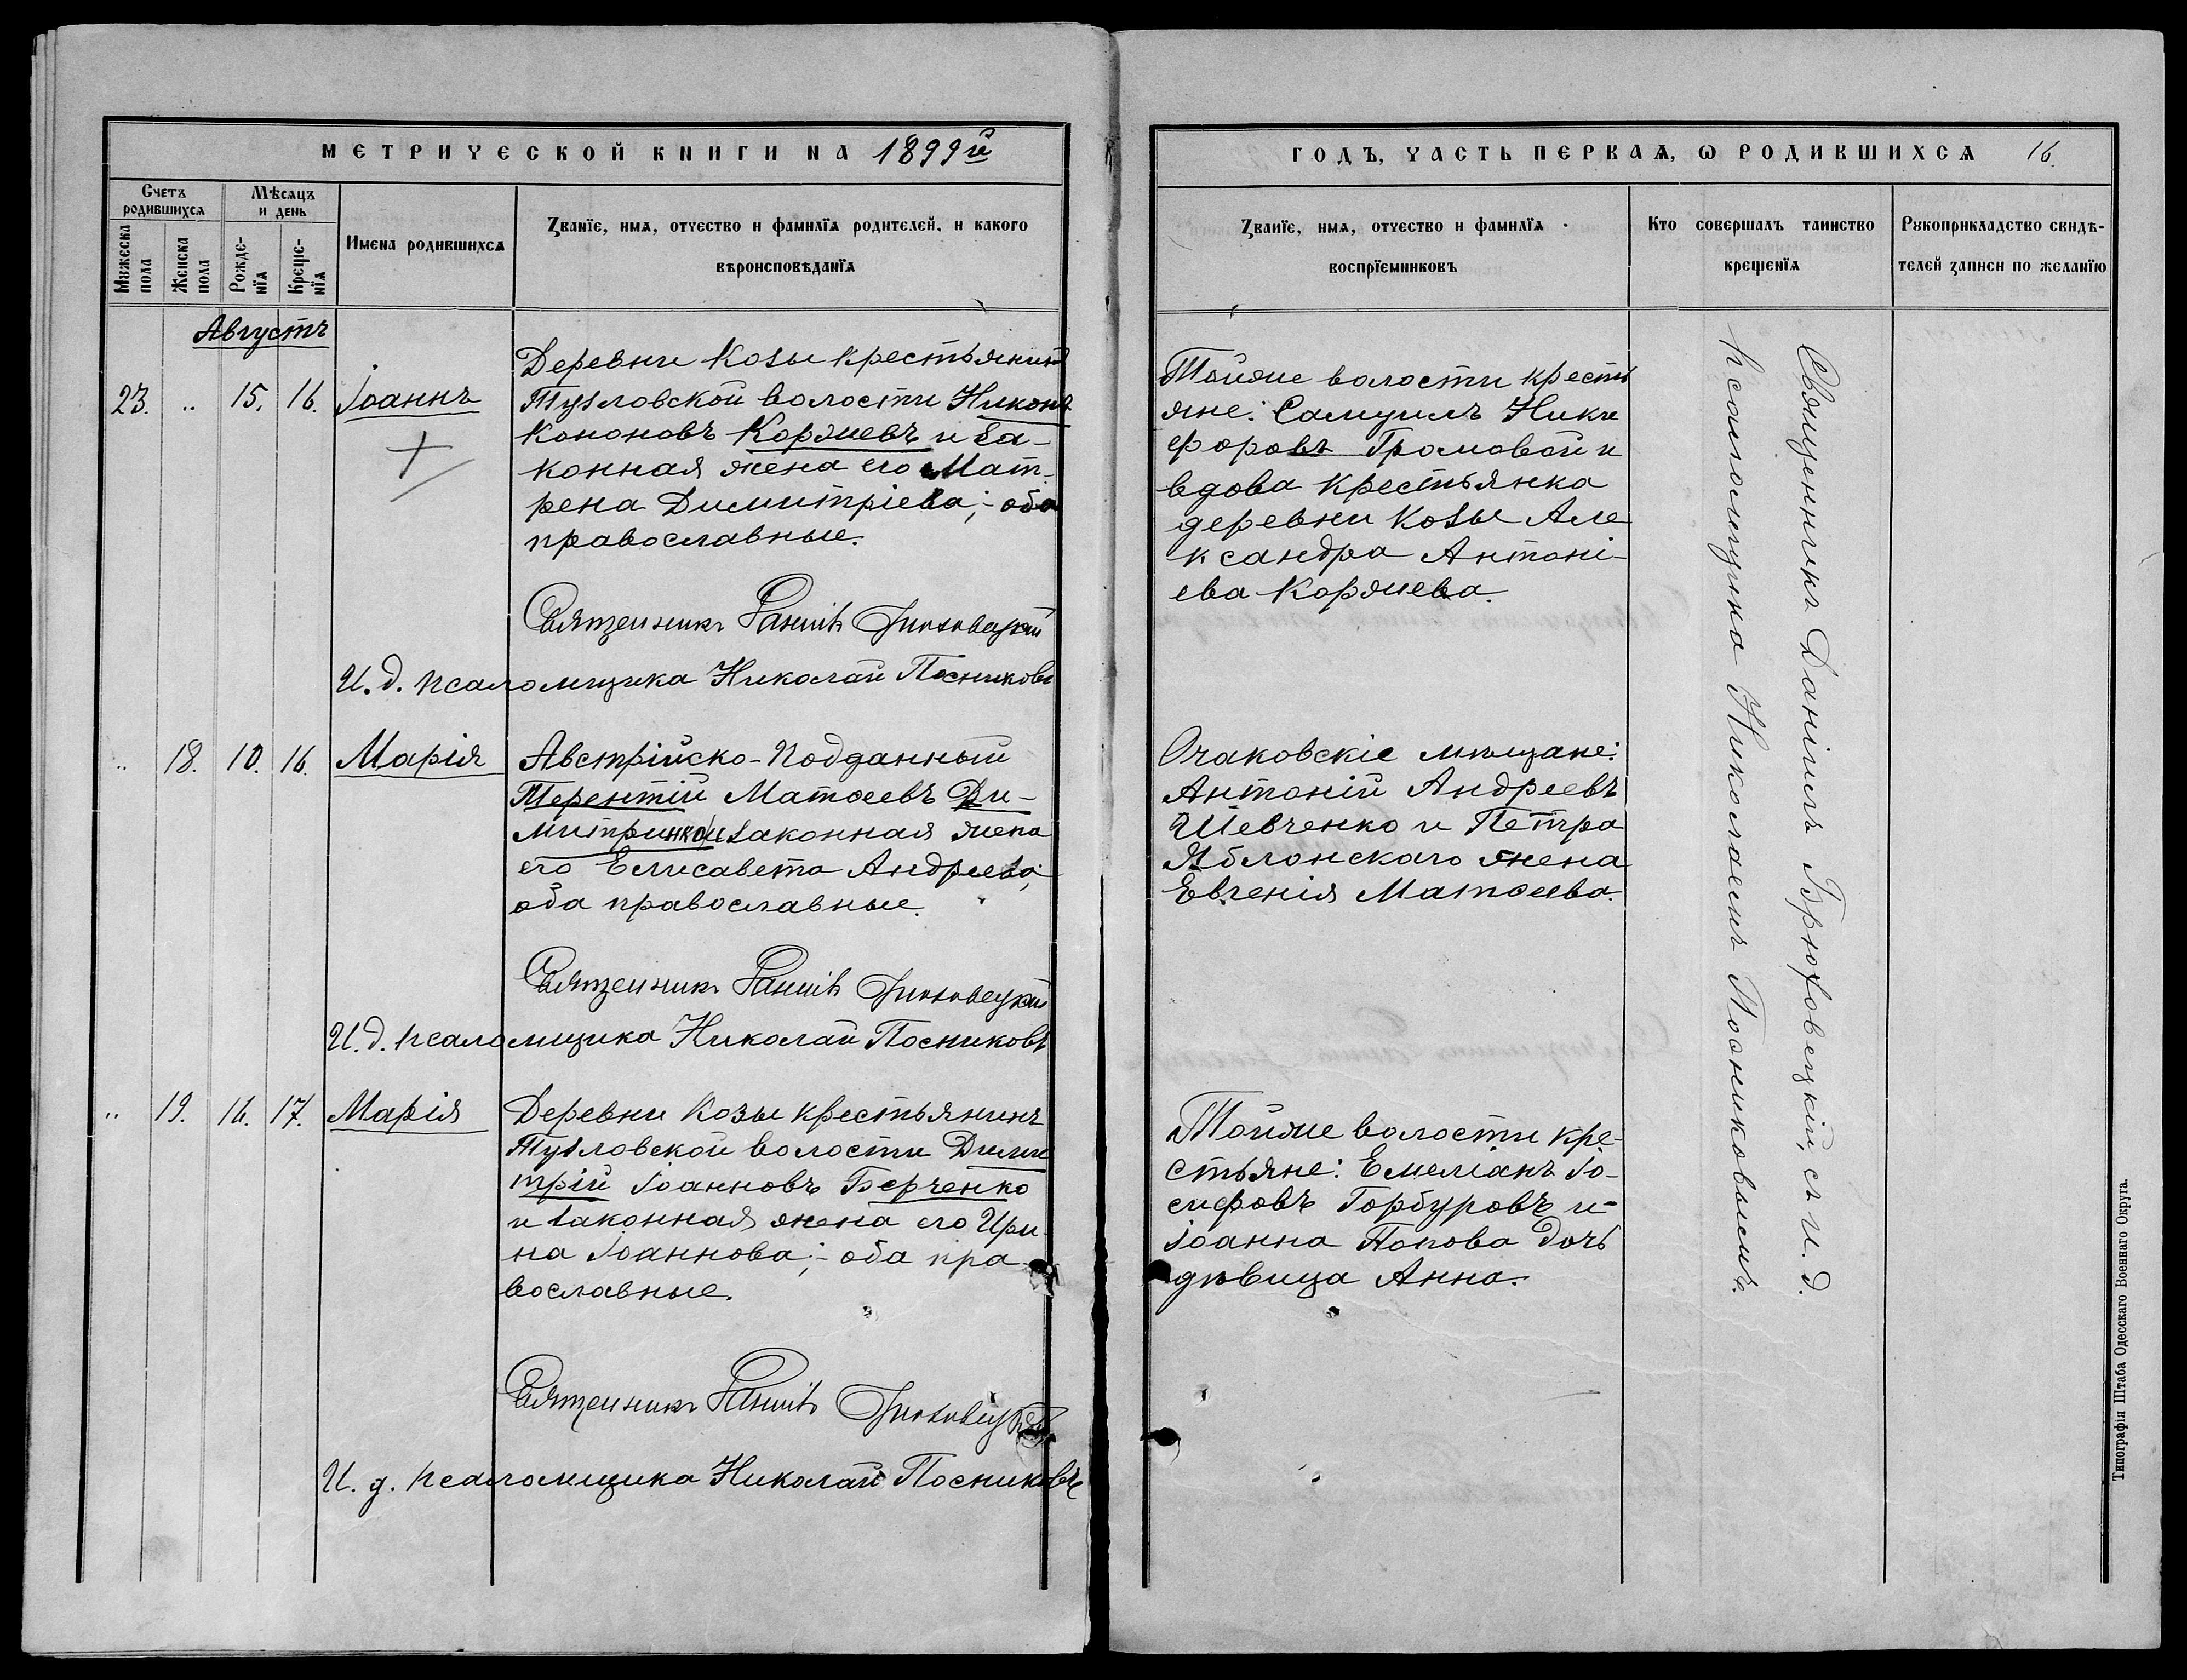 МЕТРИЧЕСКОЙ КНИГИ НА 1899й
Счетъ родившихся
Мѣсяцъ и день
Мужеска пола
Женска пола
Рожденїя
Крещенїя
Имена родившихся
Званїе, имя, отчество и фамилїя родителей, и какого
вѣроисповѣданїя
Августъ
23. „ 15. 16. Іоаннъ
Деревни Козы крестьянинъ
Тузловской волости Никонъ
Кононовъ Коржевъ и за-
конная жена его Мат-
рена Димитріева; - оба
православные.
Священникъ Даніилъ Брюховецкій
И. д. псаломщика Николай Посниковъ
„ 18. 10. 16. Марія
Австрійско-Подданный
Терентій Матѳеевъ Ди-
митринко и законная жена
его Елисавета Андреева;
оба православные.
Священникъ Даніилъ Брюховецкій
И. д. псаломщика Николай Посниковъ
„ 19. 16. 17. Марія
Деревни Козы крестьянинъ
Тузловской волости Дими
трій Іоанновъ Берченко
и законная жена его Ири-
на Іоаннова; - оба пра-
вославные.
Священникъ Даніилъ Брюховецкій
И. д. псаломщика Николай Посниковъ
ГОДЪ, ЧАСТЬ ПЕРВАЯ, Ѡ РОДИВШИХСЯ 16.
Званїе, имя, отчество и фамилїя
воспрїемниковъ
Кто совершалъ таинство
крещенїя
Рукоприкладство свидѣ-
телей записи по желанїю
Тойже волости кресть
яне: Самуилъ Ники
форовъ Громовой и
вдова крестьянка
деревни Козы Але
ксандра Антоні-
ева Коржева.
Очаковскіе мѣщане:
Антоній Андреевъ
Шевченко и Петра
Яблонскаго жена
Евгенія Матѳеева.
Тойже волости кре-
стьяне: Емеліанъ Іо-
сифовъ Горбуровъ и-
Іоанна Попова дочь
дѣвица Анна.
Священникъ Даніилъ Брюховецкій, съ И. д.
псаломщика Николаемъ Посниковымъ.
Типографія Штаба Одесскаго Военнаго Округа.